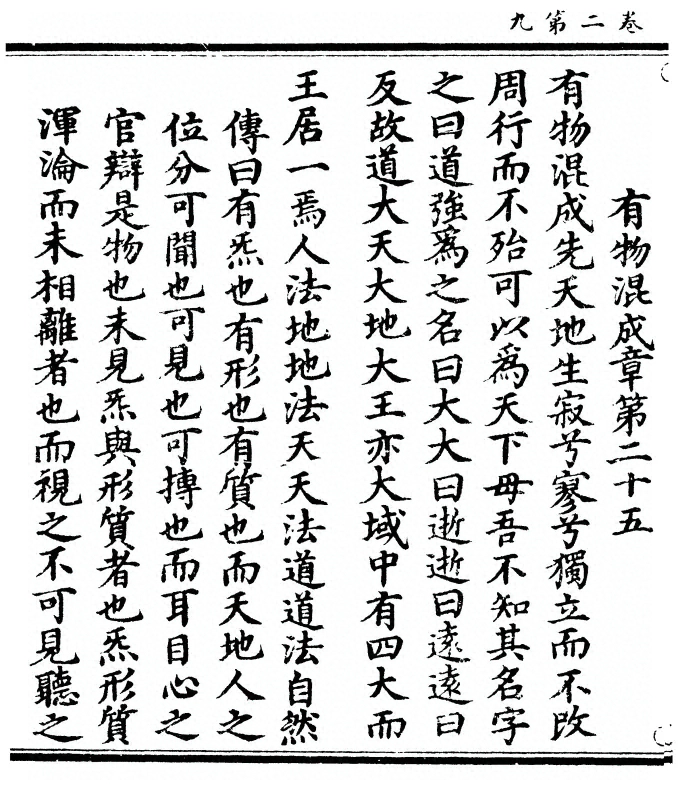 卷二第九
有物混成章第二十五
有物混成先天地生寂兮寥兮獨立而不改
周行而不殆可以爲天下母吾不知其名字
之曰道強爲之名曰大大曰逝逝曰遠遠曰
反故道大天大地大王亦大域中有四大而
王居一焉人法地地法天天法道道法自然
傳曰有炁也有形也有質也而天地人之
位分可聞也可見也可摶也而耳目心之
官辯是物也未見炁與形質者也炁形質
渾淪而未相離者也而視之不可見聽之